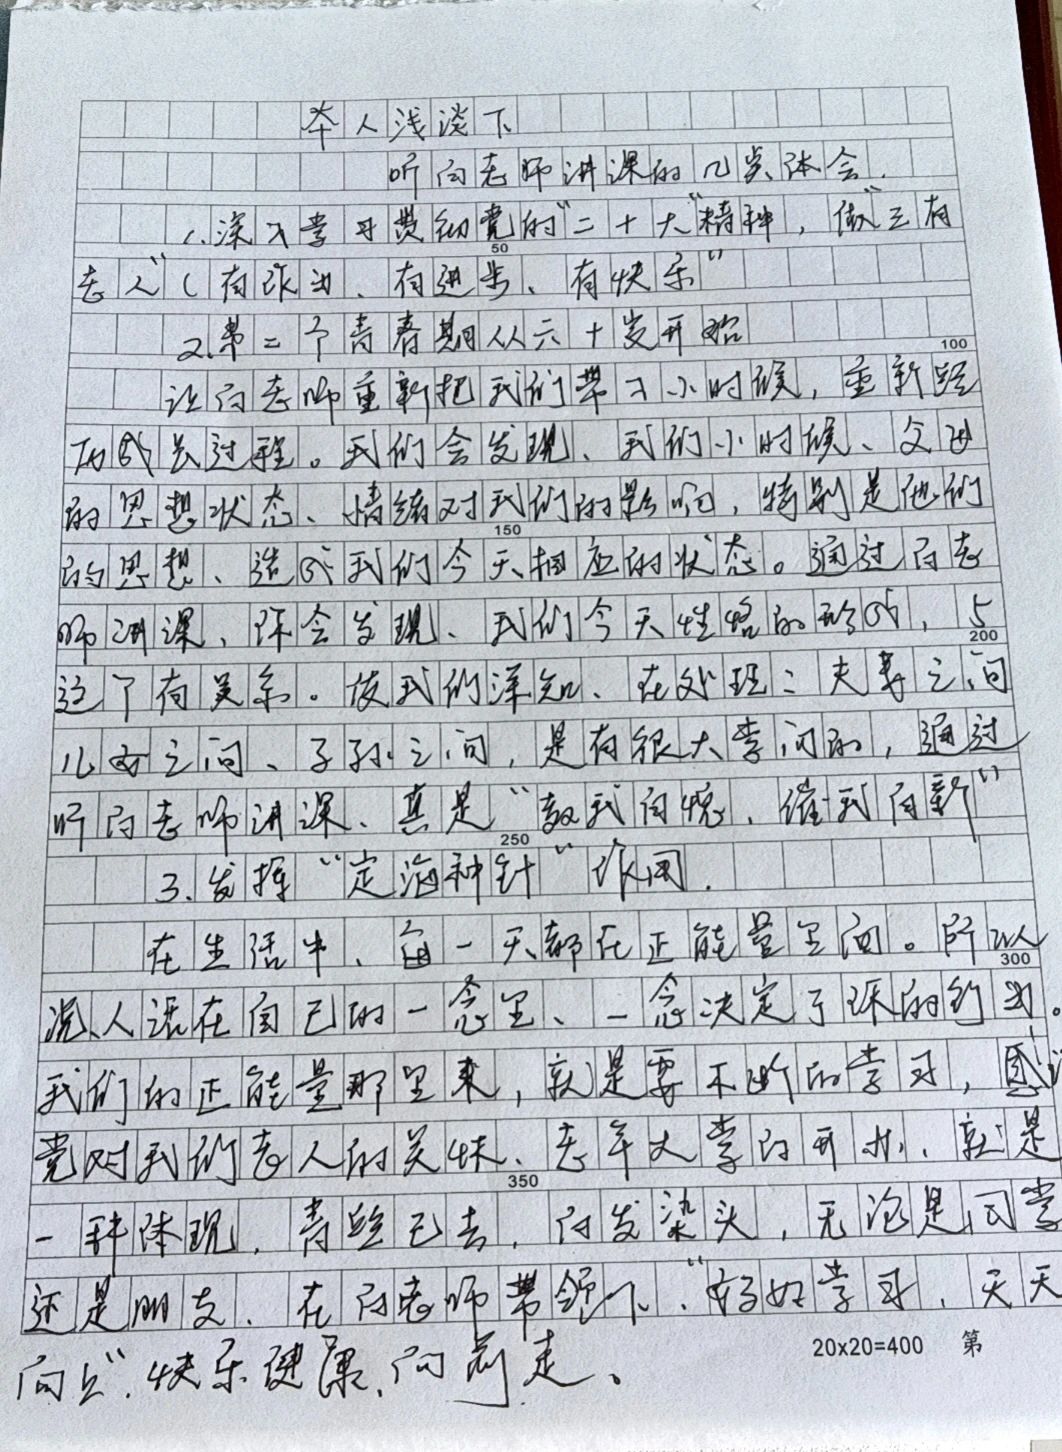 本人浅谈下
听向老师讲课的几点体会.
1.深入学习贯彻党的“二十大”精神，做“三有
老人”（有作为、有进步、有快乐”
50
2.第二个青春期从六十岁开始
100
让向老师重新把我们带了小时候，重新经
历成长过程。我们会发现、我们小时候、父母
的思想状态、情绪对我们的影响，特别是他们
150
的思想、造成我们今天相应的状态。通过向老
师讲课、你会发现、我们今天性格的形成，与
200
这个有关系。使我们深知、在处理：夫妻之间
儿女之间、子孙之间，是有很大学问的，通过
听向老师讲课、真是“教我自愧、催我自新”
250
3.发挥“定海神针”作用.
在生活中、每一天都在正能量里面。所以
300
说、人活在自己的一念里、一念决定了你的行为。
我们的正能量那里来，就是要不断的学习，感谢
党对我们老人的关怀、老年大学的开办、就是
350
一种体现，青丝已去，白发染头，无论是同学
还是朋友、在向老师带领下、“好好学习、天天
20x20=400 第
向上”、快乐健康、向前走。